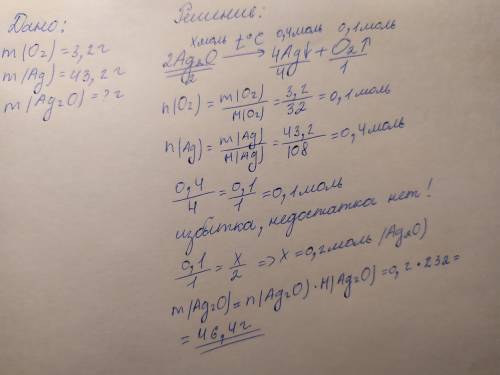 Дано:
m(O₂)=3,2г
m(Ag)=43,2г
m(Ag₂O)=?г
Решение:
x моль t°C 0,4моль 0,1моль
2Ag₂O → 4Ag↓ + O₂↑
2 4 1
n(O₂) = m(O₂)/M(O₂) = 3,2/32 = 0,1моль
n(Ag) = m(Ag)/M(Ag) = 43,2/108 = 0,4моль
0,4/4 = 0,1/1 = 0,1моль
избытка, недостатка нет!
0,1/1 = x/2 => x = 0,2моль (Ag₂O)
m(Ag₂O) = n(Ag₂O)·M(Ag₂O) = 0,2·232 =
= 46,4г